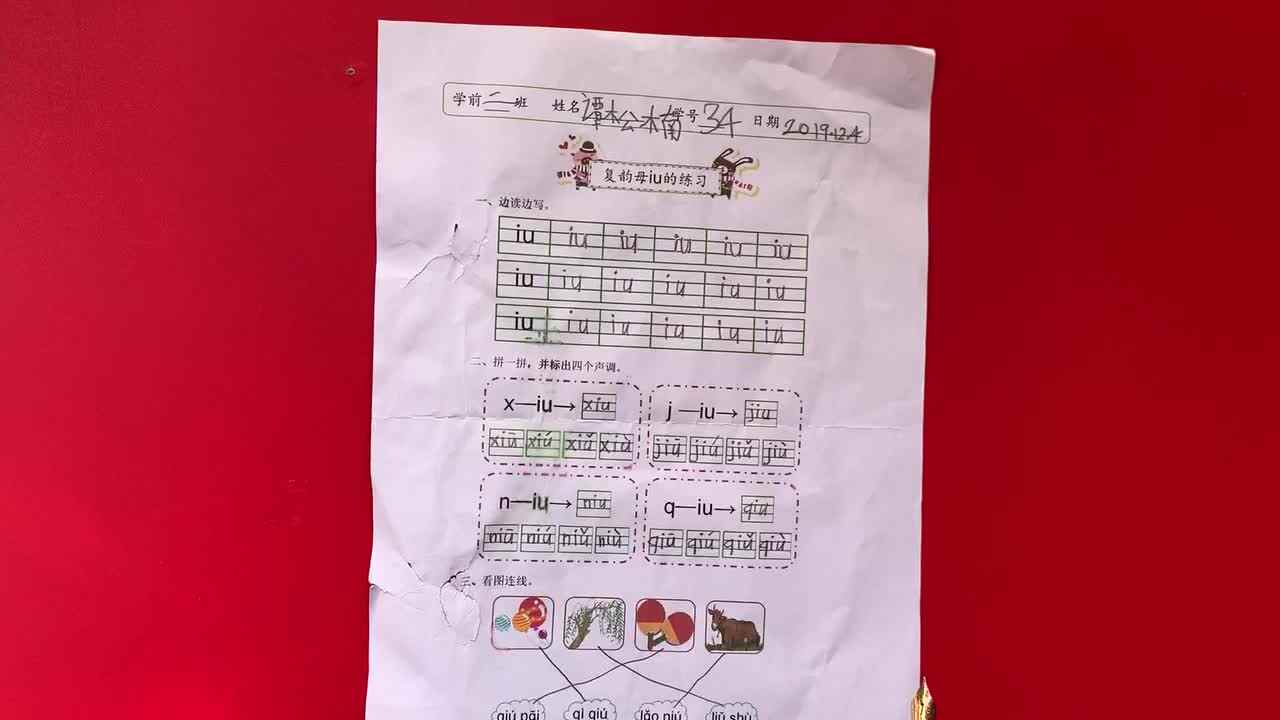 学前二班 姓名谭松楠学号34 日期2019.12.4
复韵母iu的练习
一、边读边写。
iu iu iu iu iu iu
iu iu iu iu iu iu
iu iu iu iu iu iu
二、拼一拼，并标出四个声调。
x—iu→xiu j—iu→jiu
xiū xiú xiǔ xiù jiū jiú jiǔ jiù
n—iu→niu q—iu→qiu
niū niú niǔ niù qiū qiú qiǔ qiù
三、看图连线。
qiú pāi qì qiú lǎo niú liǔ shù